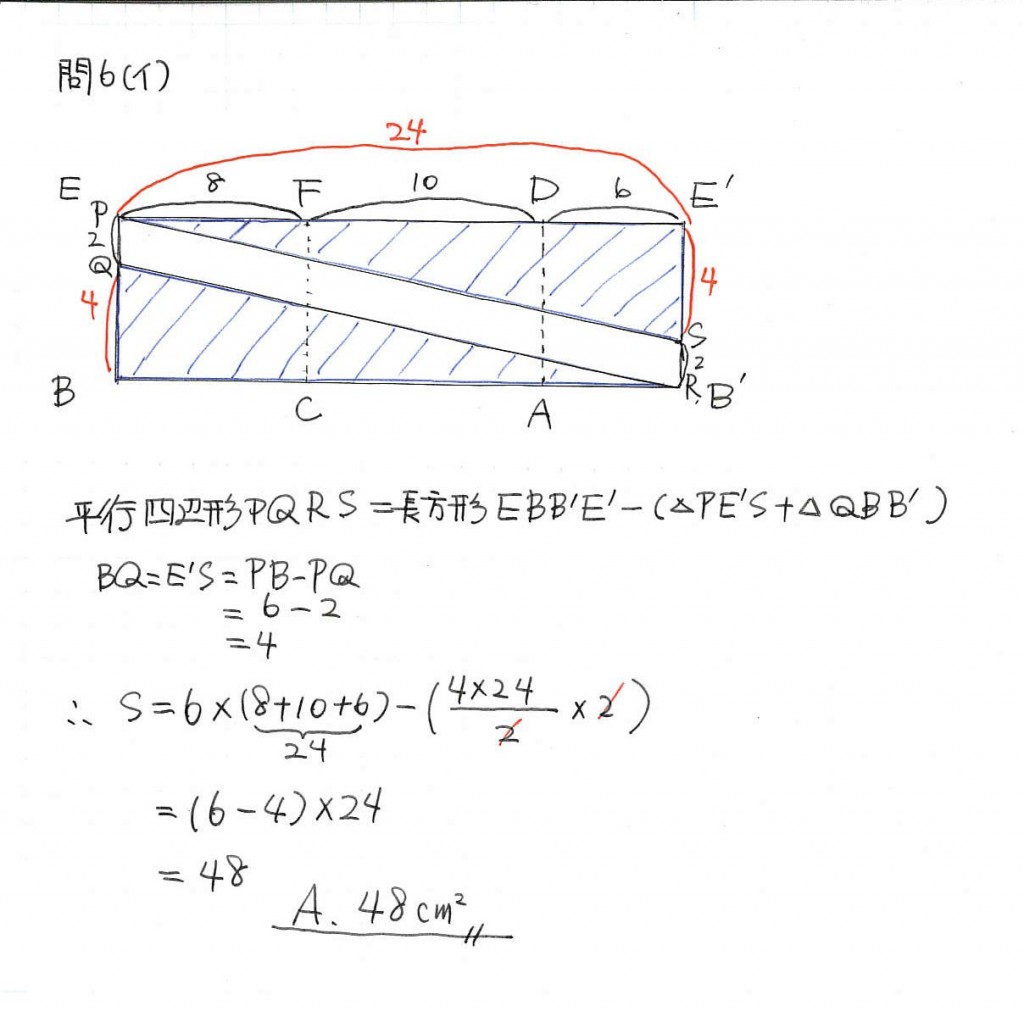 問6(イ)
24
8 F 10 D 6 E'
E
P
2
Q
4
4
S
2
R.
B C A B'
平行四辺形PQRS=長方形EBB'E'-(△PE'S+△QBB')
BQ=E'S=PB-PQ
=6-2
=4
∴ S=6×(8+10+6)-(4×24/2×2)
24
=(6-4)×24
=48
A. 48cm²